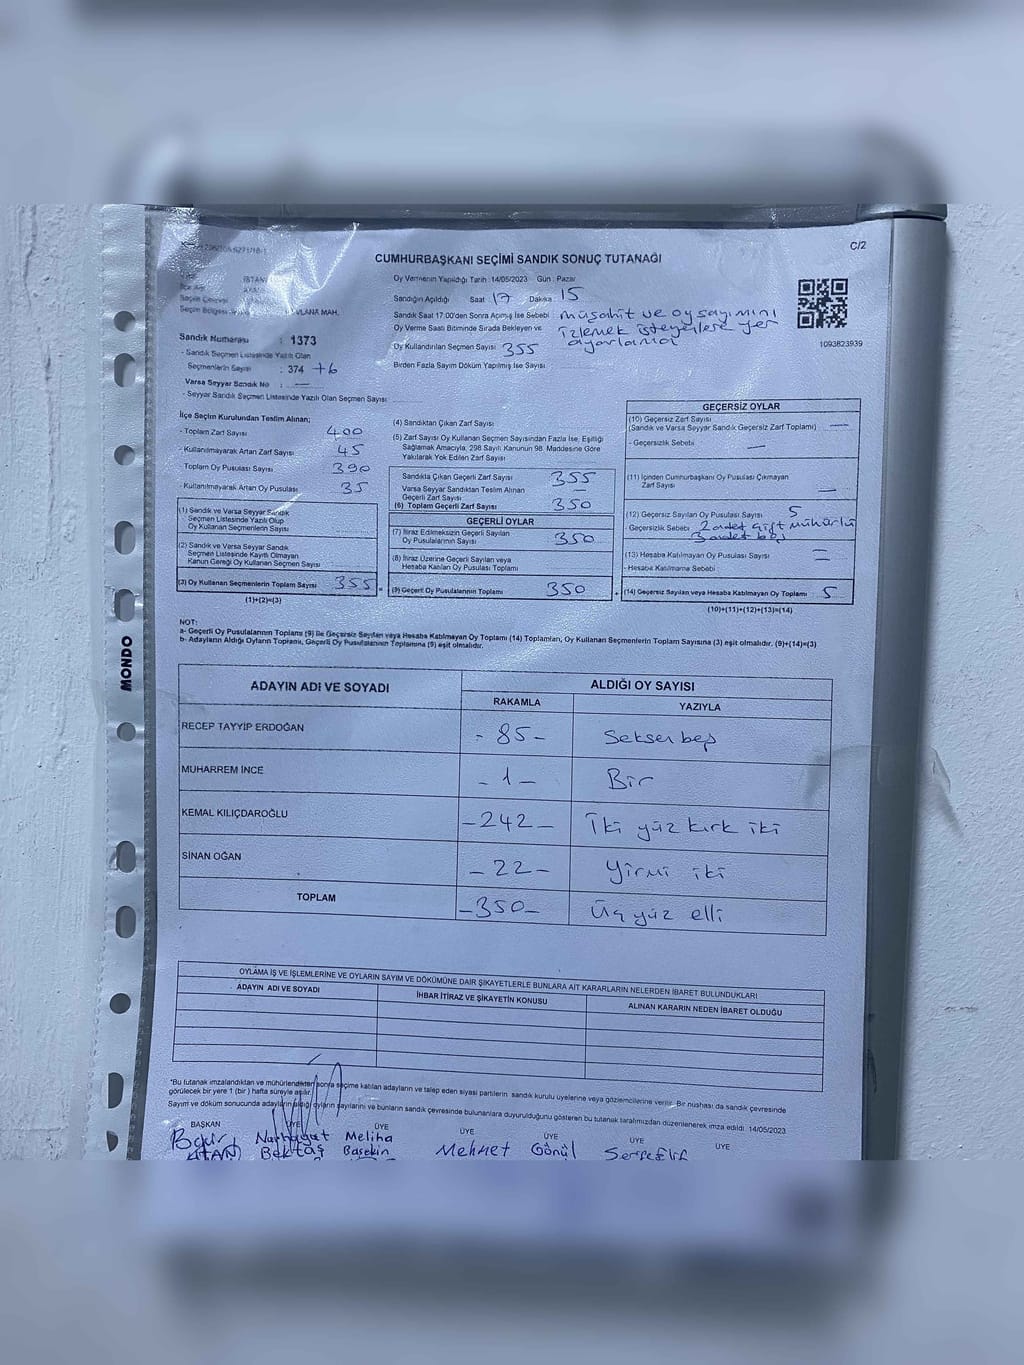 C/2
CUMHURBAŞKANI SEÇİMİ SANDIK SONUÇ TUTANAĞI
Oy Vermenin Yapıldığı Tarih : 14/05/2023 Gün : Pazar
Sandığın Açıldığı Saat : 17 Dakika : 15
Sandık Saat 17:00'den Sonra Açılmış İse Sebebi : müşahit ve oy sayımını
Oy Verme Saati Bitiminde Sırada Bekleyen ve izlemek isteyenlere yer
ayarlandı
Oy Kullandırılan Seçmen Sayısı : 355
Birden Fazla Sayım Döküm Yapılmış İse Sayısı
1093823939
VLANA MAH.
Sandık Numarası : 1373
- Sandık Seçmen Listesinde Yazılı Olan
Seçmenlerin Sayısı : 374 +6
Varsa Seyyar Sandık No : —
- Seyyar Sandık Seçmen Listesinde Yazılı Olan Seçmen Sayısı
İlçe Seçim Kurulundan Teslim Alınan;
- Toplam Zarf Sayısı 400
- Kullanılmayarak Artan Zarf Sayısı 45
Toplam Oy Pusulası Sayısı 390
- Kullanılmayarak Artan Oy Pusulası 35
(1) Sandık ve Varsa Seyyar Sandık
Seçmen Listesinde Yazılı Olup
Oy Kullanan Seçmenlerin Sayısı
(2) Sandık ve Varsa Seyyar Sandık
Seçmen Listesinde Kayıtlı Olmayan
Kanun Gereği Oy Kullanan Seçmen Sayısı
(3) Oy Kullanan Seçmenlerin Toplam Sayısı 355
(1)+(2)=(3)
(4) Sandıktan Çıkan Zarf Sayısı
(5) Zarf Sayısı Oy Kullanan Seçmen Sayısından Fazla İse, Eşitliği
Sağlamak Amacıyla, 298 Sayılı Kanunun 98. Maddesine Göre
Yakılarak Yok Edilen Zarf Sayısı
Sandıkta Çıkan Geçerli Zarf Sayısı 355
Varsa Seyyar Sandıktan Teslim Alınan
Geçerli Zarf Sayısı —
(6) Toplam Geçerli Zarf Sayısı 350
GEÇERLİ OYLAR
(7) İtiraz Edilmeksizin Geçerli Sayılan
Oy Pusulalarının Sayısı 350
(8) İtiraz Üzerine Geçerli Sayılan veya
Hesaba Katılan Oy Pusulası Toplamı
(9) Geçerli Oy Pusulalarının Toplamı 350
GEÇERSİZ OYLAR
(10) Geçersiz Zarf Sayısı
(Sandık ve Varsa Seyyar Sandık Geçersiz Zarf Toplamı) —
- Geçersizlik Sebebi —
(11) İçinden Cumhurbaşkanı Oy Pusulası Çıkmayan
Zarf Sayısı —
(12) Geçersiz Sayılan Oy Pusulası Sayısı 5
- Geçersizlik Sebebi : 2 adet çift mühürlü
3 adet boş
(13) Hesaba Katılmayan Oy Pusulası Sayısı —
- Hesaba Katılmama Sebebi : —
(14) Geçersiz Sayılan veya Hesaba Katılmayan Oy Toplamı 5
(10)+(11)+(12)+(13)=(14)
NOT:
a- Geçerli Oy Pusulalarının Toplamı (9) ile Geçersiz Sayılan veya Hesaba Katılmayan Oy Toplamı (14) Toplamları, Oy Kullanan Seçmenlerin Toplam Sayısına (3) eşit olmalıdır. (9)+(14)=(3)
b- Adayların Aldığı Oyların Toplamı, Geçerli Oy Pusulalarının Toplamına (9) eşit olmalıdır.
MONDO
ADAYIN ADI VE SOYADI ALDIĞI OY SAYISI
RAKAMLA YAZIYLA
RECEP TAYYİP ERDOĞAN - 85 - Seksen beş
MUHARREM İNCE - 1 - Bir
KEMAL KILIÇDAROĞLU - 242 - İki yüz kırk iki
SİNAN OĞAN - 22 - Yirmi iki
TOPLAM - 350 - Üç yüz elli
OYLAMA İŞ VE İŞLEMLERİNE VE OYLARIN SAYIM VE DÖKÜMÜNE DAİR ŞİKAYETLERLE BUNLARA AİT KARARLARIN NELERDEN İBARET BULUNDUKLARI
ADAYIN ADI VE SOYADI İHBAR İTİRAZ VE ŞİKAYETİN KONUSU ALINAN KARARIN NEDEN İBARET OLDUĞU
*Bu tutanak imzalandıktan ve mühürlendikten sonra seçime katılan adayların ve talep eden siyasi partilerin sandık kurulu üyelerine veya gözlemcilerine verilir. Bir nüshası da sandık çevresinde
görülecek bir yere 1 (bir) hafta süreyle asılır.
Sayım ve döküm sonucunda adayların aldığı oyların sayılarını ve bunların sandık çevresinde bulunanlara duyurulduğunu gösteren bu tutanak tarafımızdan düzenlenerek imza edildi. 14/05/2023
BAŞKAN ÜYE ÜYE ÜYE ÜYE ÜYE ÜYE
Nurhayat Meliha Mehmet Gönül
Bektaş Başekin